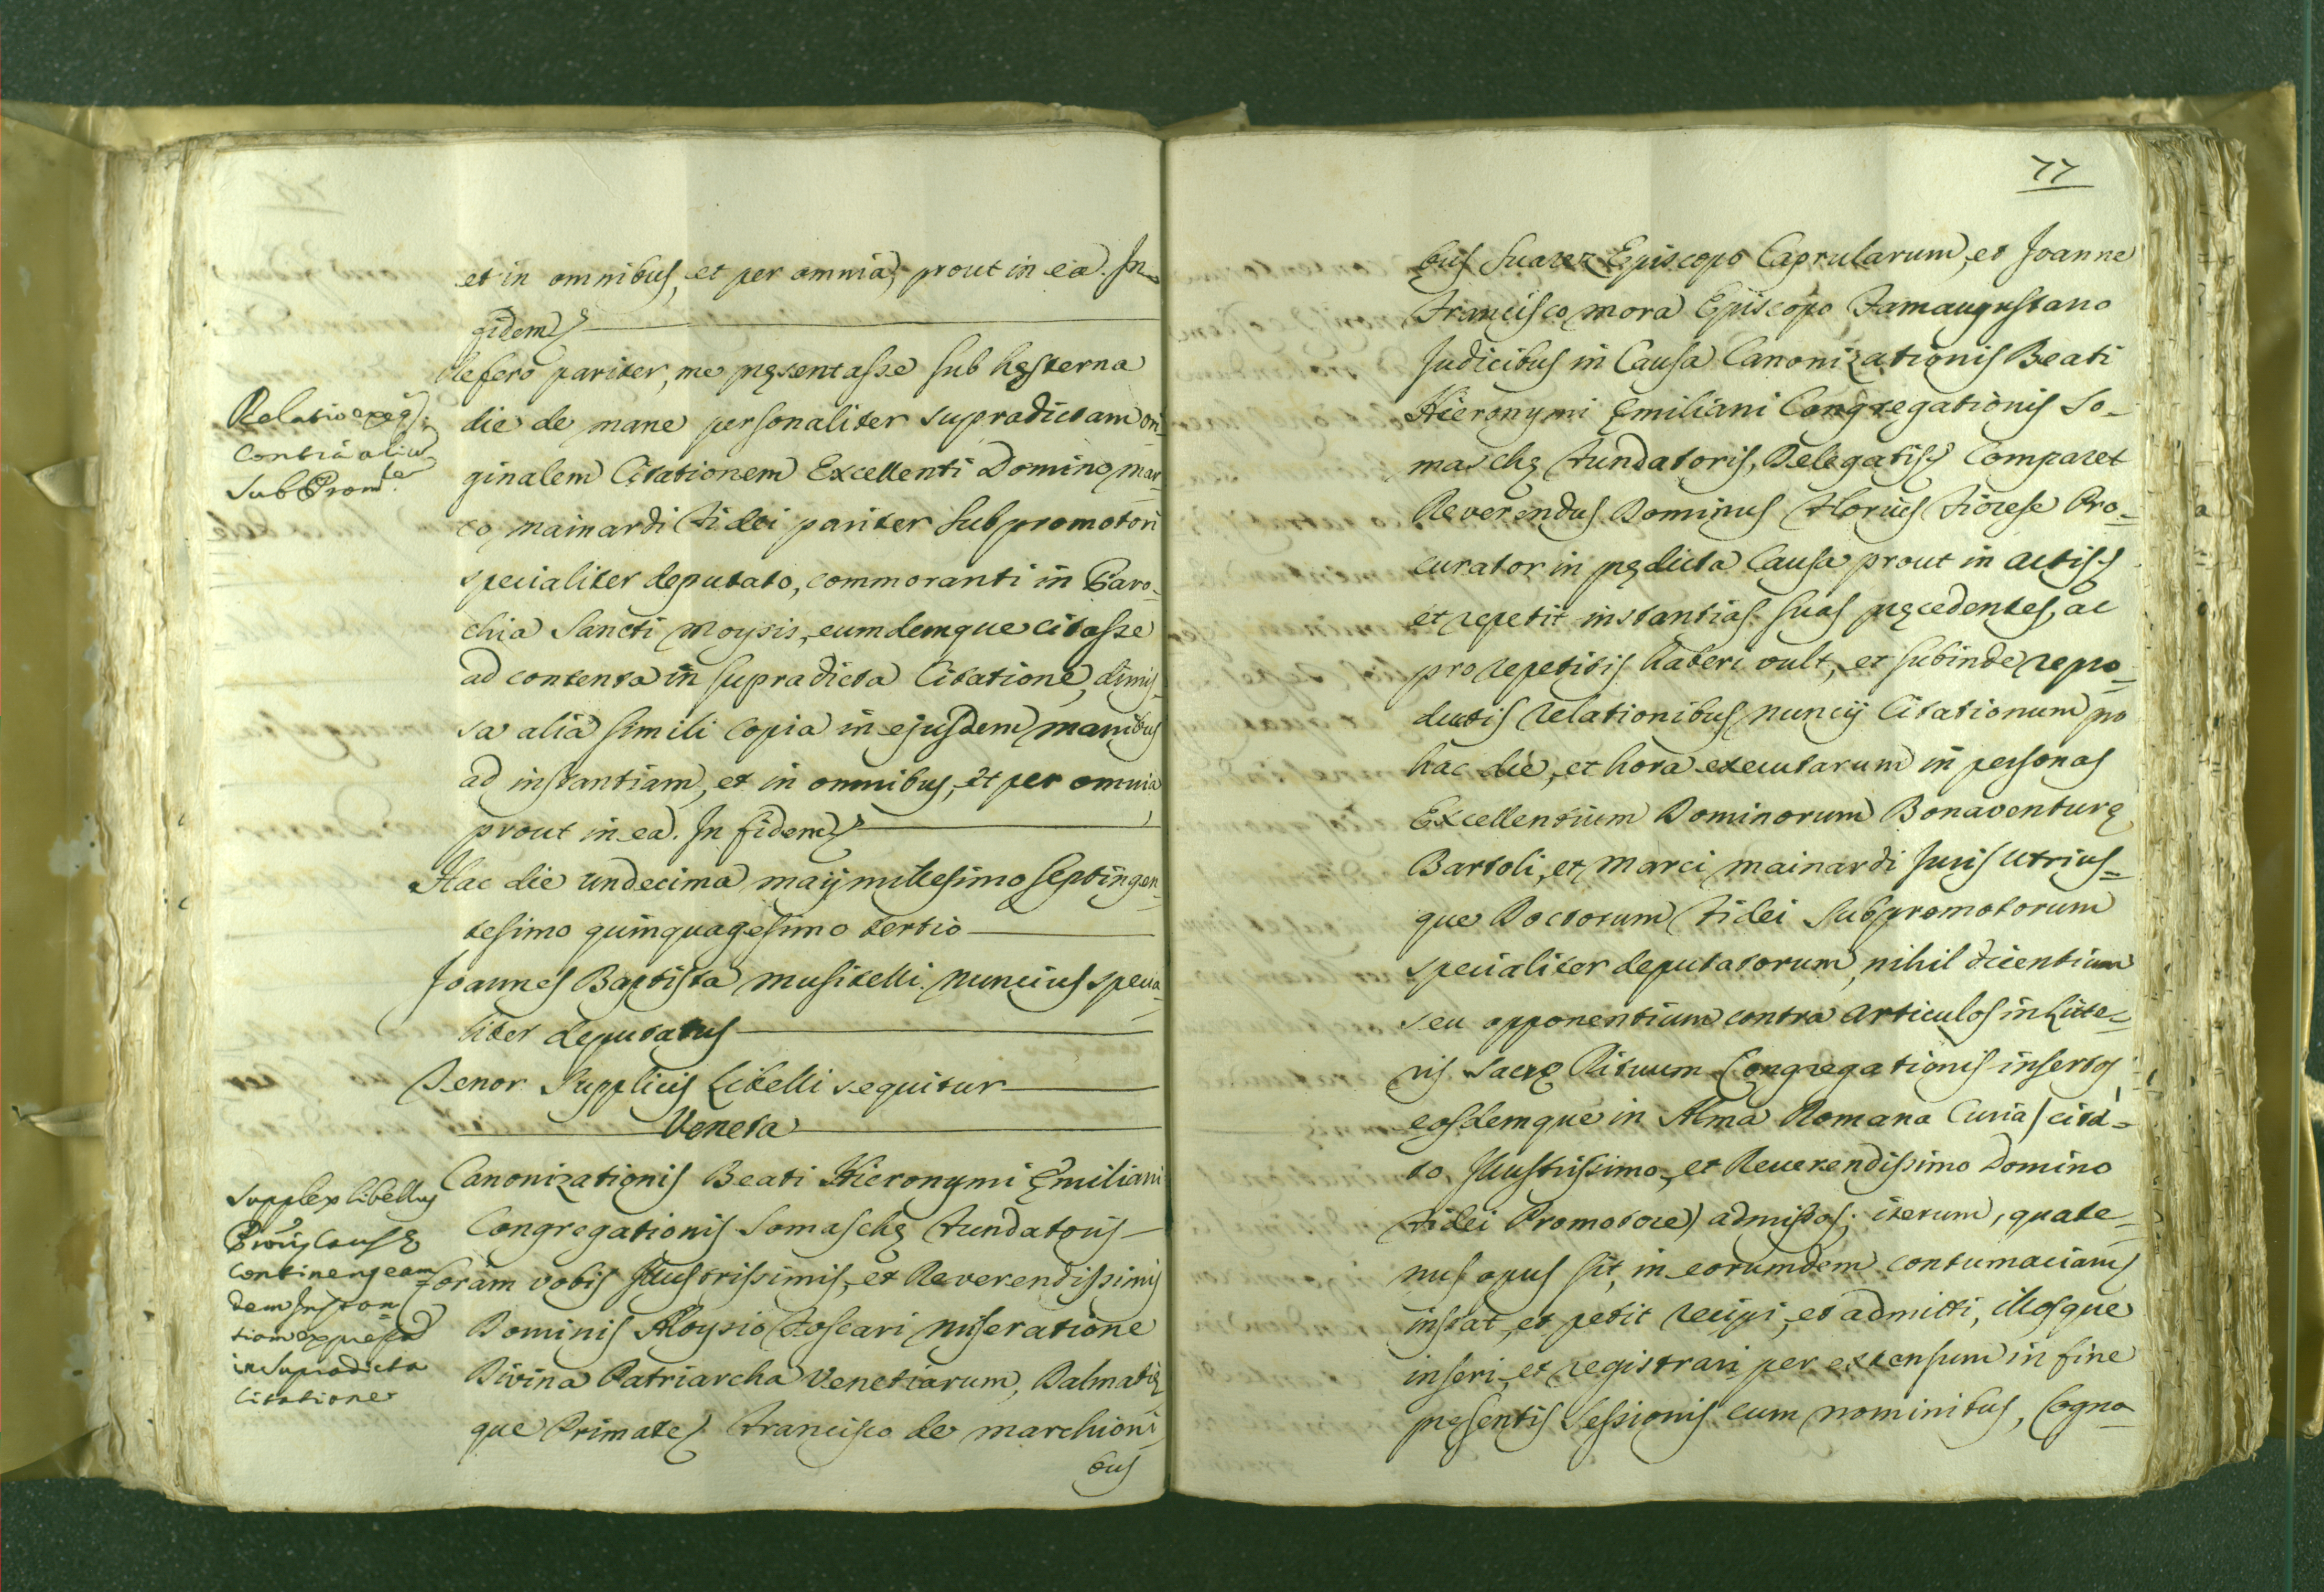 et in omnibus, et per omnia, prout in ea. In
fidem
Refero pariter, me pręsentasse sub hesterna
Relatio exeq.
contra alium
SubProm.
die de mane personaliter supradictam ori-
ginalem Citationem Excellenti Domino Mar-
co Mainardi Fidei pariter subpromotori
specialiter deputato, commoranti in Paro-
chia Sancti Moysis, eumdemque citasse
ad contenta in supradicta Citatione, dimis-
sa alia simili copia in ejusdem manibus
ad instantiam, et in omnibus, et per omnia
prout in ea. In fidem
Hac die undecima Maij millesimo septingen-
tesimo quinquagesimo tertio
Joannes Baptista Musitelli Nuncius specia-
liter deputatus
Tenor Supplicis Libelli sequitur
Veneta
Canonizationis Beati Hieronymi Ęmiliani
Supplex libellus
Procuris Causę
continens eam
dem Instan
tiam expressa
in Supradicta
Citatione
Congregationis Somaschę Fundatoris
Coram vobis Illustrissimis, et Reverendissimis
Dominis Aloysio Foscari miseratione
Divina Patriarcha Venetiarum, Dalmatię
que Primate, Francisco de Marchioni-
bus
77
bus Suarez Episcopo Caprularum, et Joanne
Francisco Mora Episcopo Famaugustano
Judicibus in Causa Canonizationis Beati
Hieronymi Ęmiliani Congregationis So-
maschę Fundatoris, Delegatis Comparet
Reverendus Dominus Florius Fiorese Pro-
curator in pędicta Causa prout in actis
et repetit instantias suas pręcedentes, ac
pro repetitis haberi vult, et subinde repro-
ductis relationibus Nuncij Citationum pro
hac die, et hora executarum in personas
Excellentium Dominorum Bonaventurę
Bartoli, et Marci Mainardi Juris utrius-
que Doctorum Fidei Subpromotorum
specialiter deputatorum, nihil dicentium
seu opponentium contra Articulos in Litte-
ris Sacrę Rituum Congregationis insertos
eosdemque in Alma Romana Curia (cita-
to Illustrissimo, et Reverendissimo Domino
Fidei Promotore) admissos; iterum, quate-
nus opus sit, in eorumdem contumaciam
instat, et petit recipi, et admitti, illosque
inseri, et registrari per extensum in fine
pręsentis Sessionis cum nominibus, Cogno-